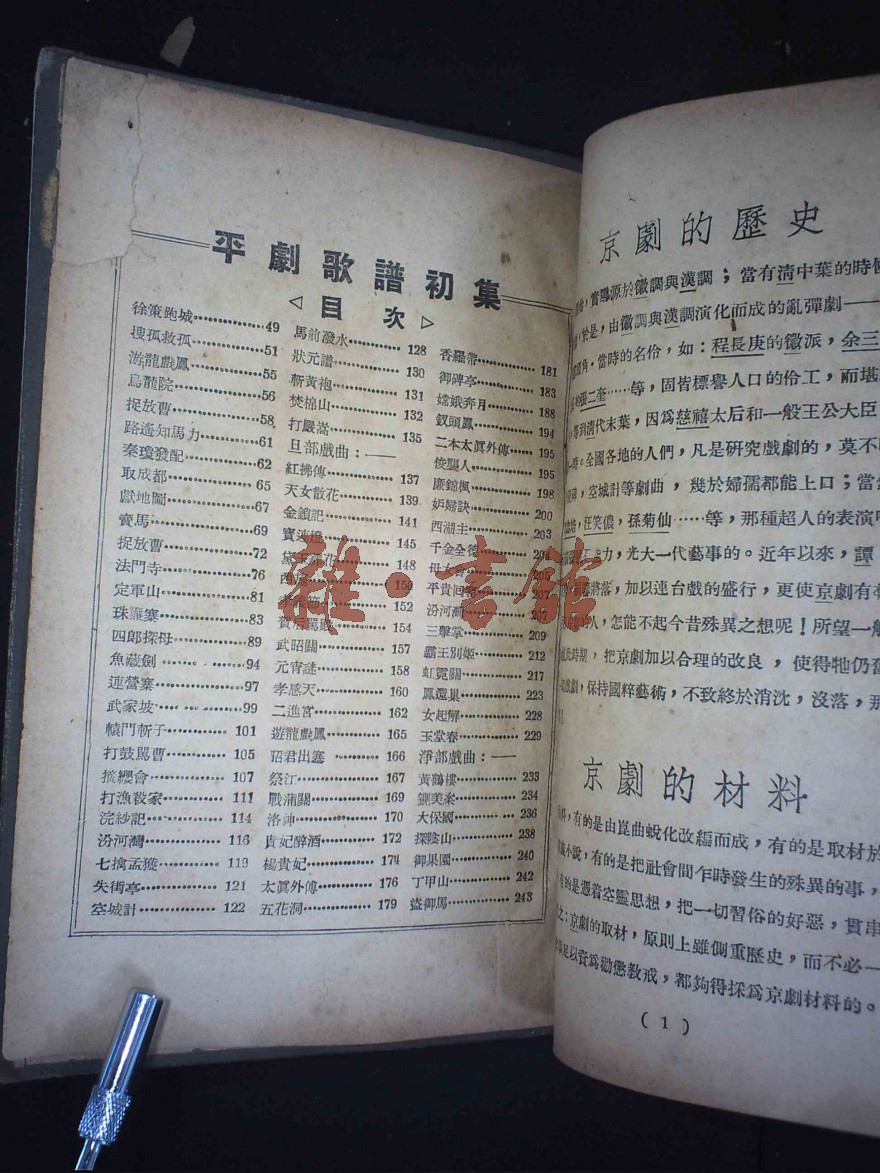 平劇歌譜初集
◁目 次▷
徐策跑城………49
搜孤救孤………51
游龍戲鳳………55
烏龍院………56
捉放曹………58
路遙知馬力………61
秦瓊發配………62
取成都………65
獻地圖………67
賣馬………69
捉放曹………72
法門寺………76
定軍山………81
珠簾寨………83
四郎探母………89
魚藏劍………94
連營寨………97
武家坡………99
轅門斬子………101
打鼓罵曹………105
摘纓會………107
打漁殺家………111
浣紗記………114
汾河灣………116
七擒孟獲………119
失街亭………121
空城計………122
馬前潑水………128
狀元譜………130
斬黃袍………131
焚棉山………132
打嚴嵩………135
旦部戲曲：——
紅拂傳………137
天女散花………139
金鎖記………141
寶蓮燈………145
黛 花………148
150
152
賀后罵殿………154
武昭關………157
元宵謎………158
孝感天………160
二進宮………162
遊龍戲鳳………165
昭君出塞………166
祭江………167
戰蒲關………169
洛神………170
貴妃醉酒………172
楊貴妃………174
太眞外傳………176
五花洞………179
香羅帶………181
御碑亭………183
嫦娥奔月………188
釵頭鳳………194
二本太眞外傳………195
俊襲人………195
廉錦楓………198
妒婦訣………200
西湖主………203
千金全德………204
母女會
平貴回窰………207
汾河灣………207
三擊掌………209
霸王別姬………212
虹霓關………217
鳳還巢………223
女起解………228
玉堂春………229
淨部戲曲：——
黃鶴樓………233
鍘美案………234
大保國………236
探陰山………238
御果園………240
丁甲山………242
盜御馬………243
京劇的歷史
實導源於徽調與漢調；當有清中葉的時候
於是，由徽調與漢調演化而成的亂彈劇——
當時的名伶，如：程長庚的徽派，余三
張二奎……等，固皆標譽人口的伶工，而堪
等到清代末葉，因爲慈禧太后和一般王公大臣
時。全國各地的人們，凡是研究戲劇的，莫不
空城計等劇曲，幾於婦孺都能上口；當
汪笑儂，孫菊仙……等，那種超人的表演
力，光大一代藝事的。近年以來，譚
將落，加以連台戲的盛行，更使京劇有
人，怎能不起今昔殊異之想呢！所望一般
時期，把京劇加以合理的改良，使得牠仍舊
戲劇，保持國粹藝術，不致終於消沈，沒落，那
京劇的材料
料，有的是由崑曲蛻化改編而成，有的是取材於
小說，有的是把社會間乍時發生的殊異的事，
有的是憑着空靈思想，把一切習俗的好惡，貫串
之：京劇的取材，原則上雖側重歷史，而不必一
足以資爲勸懲教戒，都夠得採爲京劇材料的。
( 1 )
雜·書館